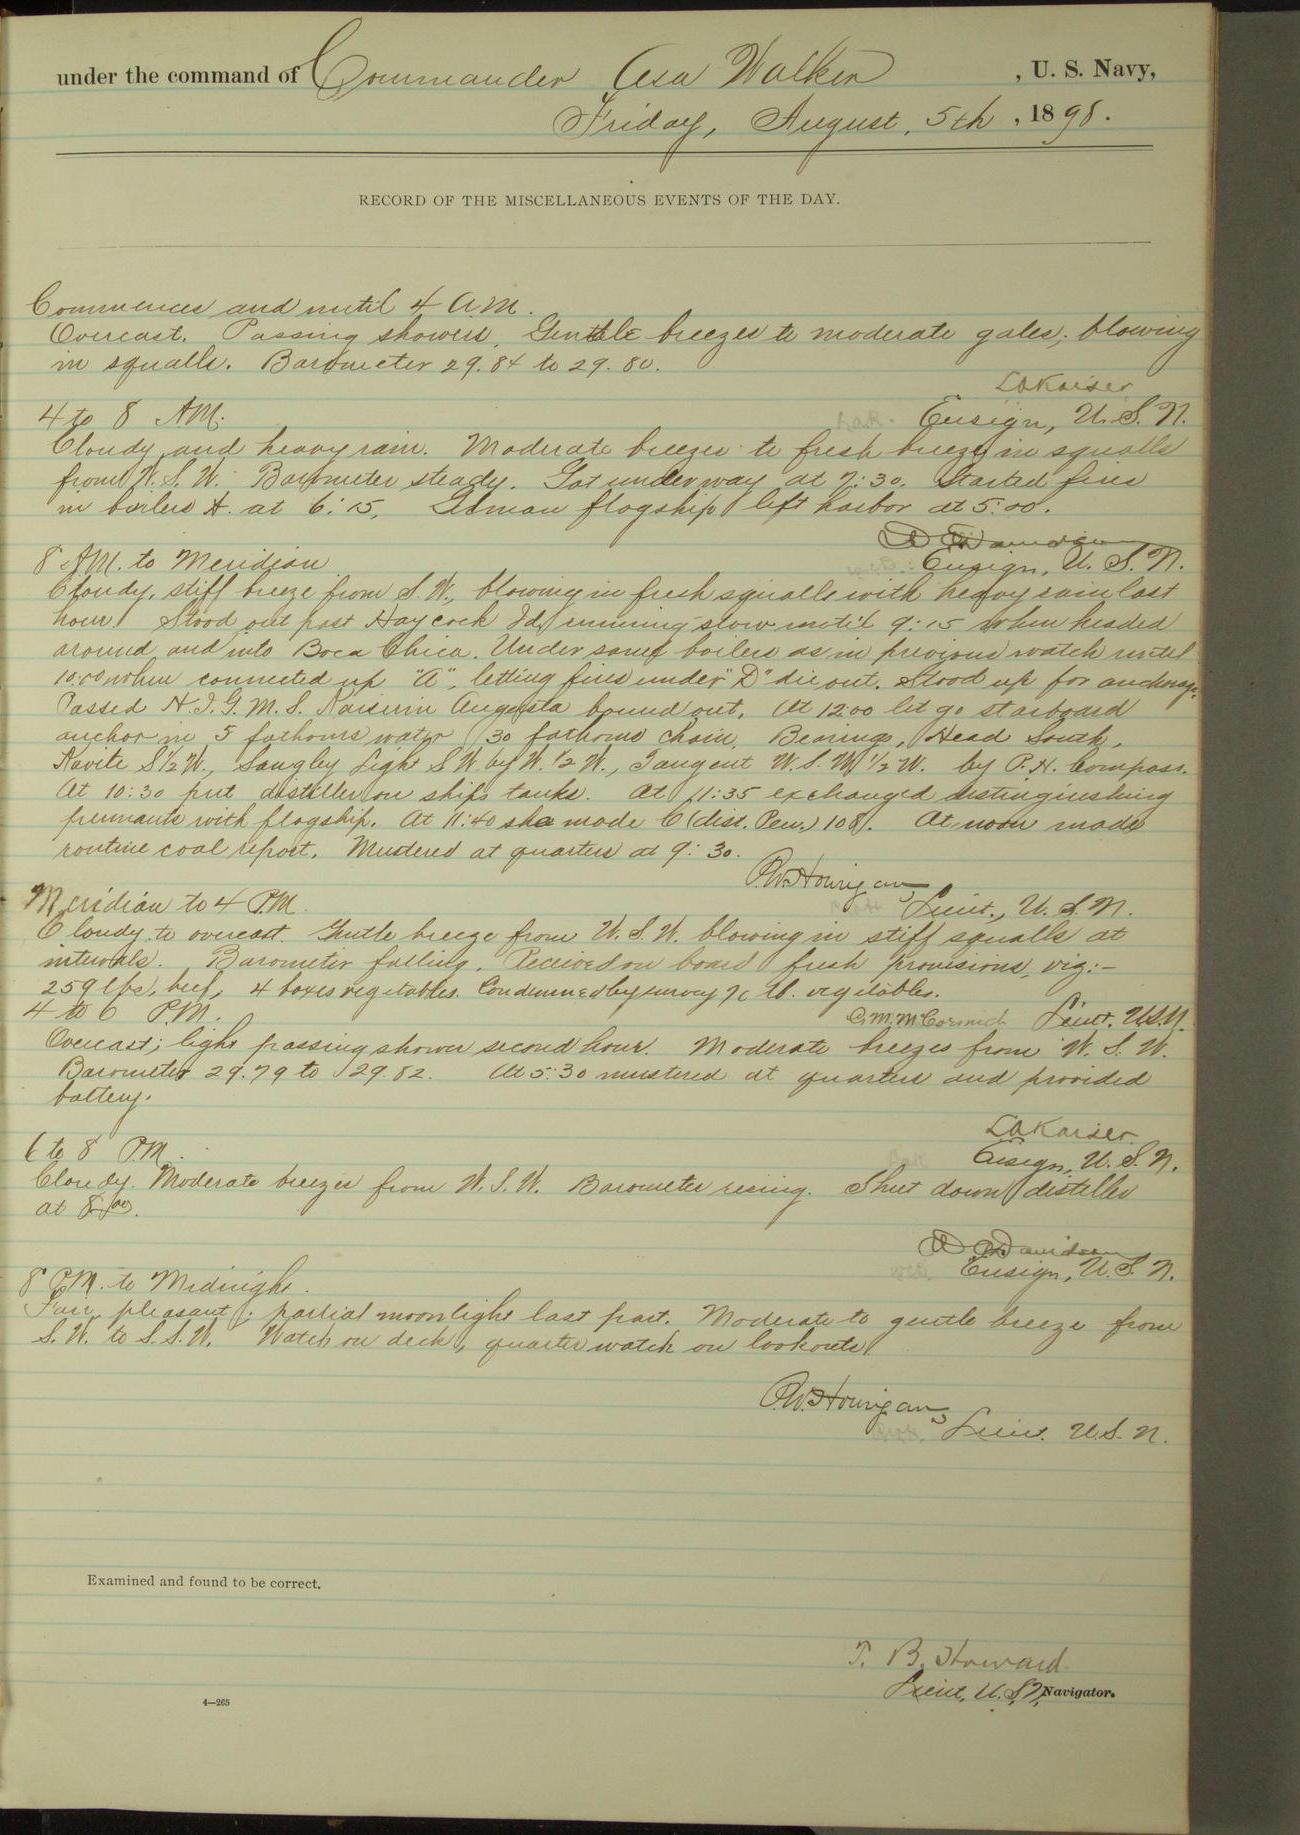 under the command of Commander Asa Walker, U. S. Navy,
Friday, August, 5th, 1898.
RECORD OF THE MISCELLANEOUS EVENTS OF THE DAY.
Commences and until 4 A.M.
Overcast. Passing showers, Gentle breezes to moderate gales; blowing
in squalls. Barometer 29.84 to 29.80.
L A Kaiser
4 to 8 A.M. Ensign, U. S. N.
Cloudy and heavy rain. Moderate breezes to fresh breezes in squalls
from W. S. W. Barometer steady. Got underway at 7:30. Started fires
in boilers A. at 6:15, German flagship left harbor at 5:00.
Davidson
8 A.M. to Meridian. Ensign, U. S. N.
Cloudy, stiff breeze from S. W., blowing in fresh squalls with heavy rain last
hour. Stood out past Haycock Id, running slow until 9:15 when headed
around and into Boca Chica. Under same boilers as in previous watch until
10:00 when connected up "A", letting fires under "D" die out. Stood up for anchorage.
Passed H. I. G. M. S. Kaiserin Augusta bound out. At 12:00 let go starboard
anchor in 5 fathoms water 30 fathoms chain. Bearings, Head South,
Kavite S 1/2 W., Sangley Light S W by W. 1/2 W., Tangent W. S. W. 1/2 W. by P. H. Compass.
At 10:30 put distiller on ships tanks. At 11:35 exchanged distinguishing
pennants with flagship. At 11:40 she made C (dist. Pen.) 108. At noon made
routine coal report. Mustered at quarters at 9:30.
P.W. Hourigan,
Meridian to 4 P.M. Lieut., U. S. N.
Cloudy to overcast. Gentle breeze from W. S. W. blowing in stiff squalls at
intervals. Barometer falling. Received on board fresh provisions, viz:—
259 lbs. beef, 4 boxes vegetables. Condemned by survey lb. vegetables.
4 to 6 P.M. C. M. McCormick Lieut. U.S.N.
Overcast; light passing shower second hour. Moderate breezes from W. S. W.
Barometer 29.79 to 29.82. At 5:30 mustered at quarters and provided
battery.
L A Kaiser
6 to 8 P.M. Ensign, U. S. N.
Cloudy. Moderate breezes from W. S. W. Barometer rising. Shut down distiller
at 8:00.
Davidson
8 P.M. to Midnight. Ensign, U. S. N.
Fair, pleasant; partial moonlight last part. Moderate to gentle breeze from
S. W. to S. S. W. Watch on deck, quarter watch on lookouts.
P.W. Hourigan,
Lieut. U. S. N.
Examined and found to be correct.
T. B. Howard
Lieut, U. S. N, Navigator.
4—265